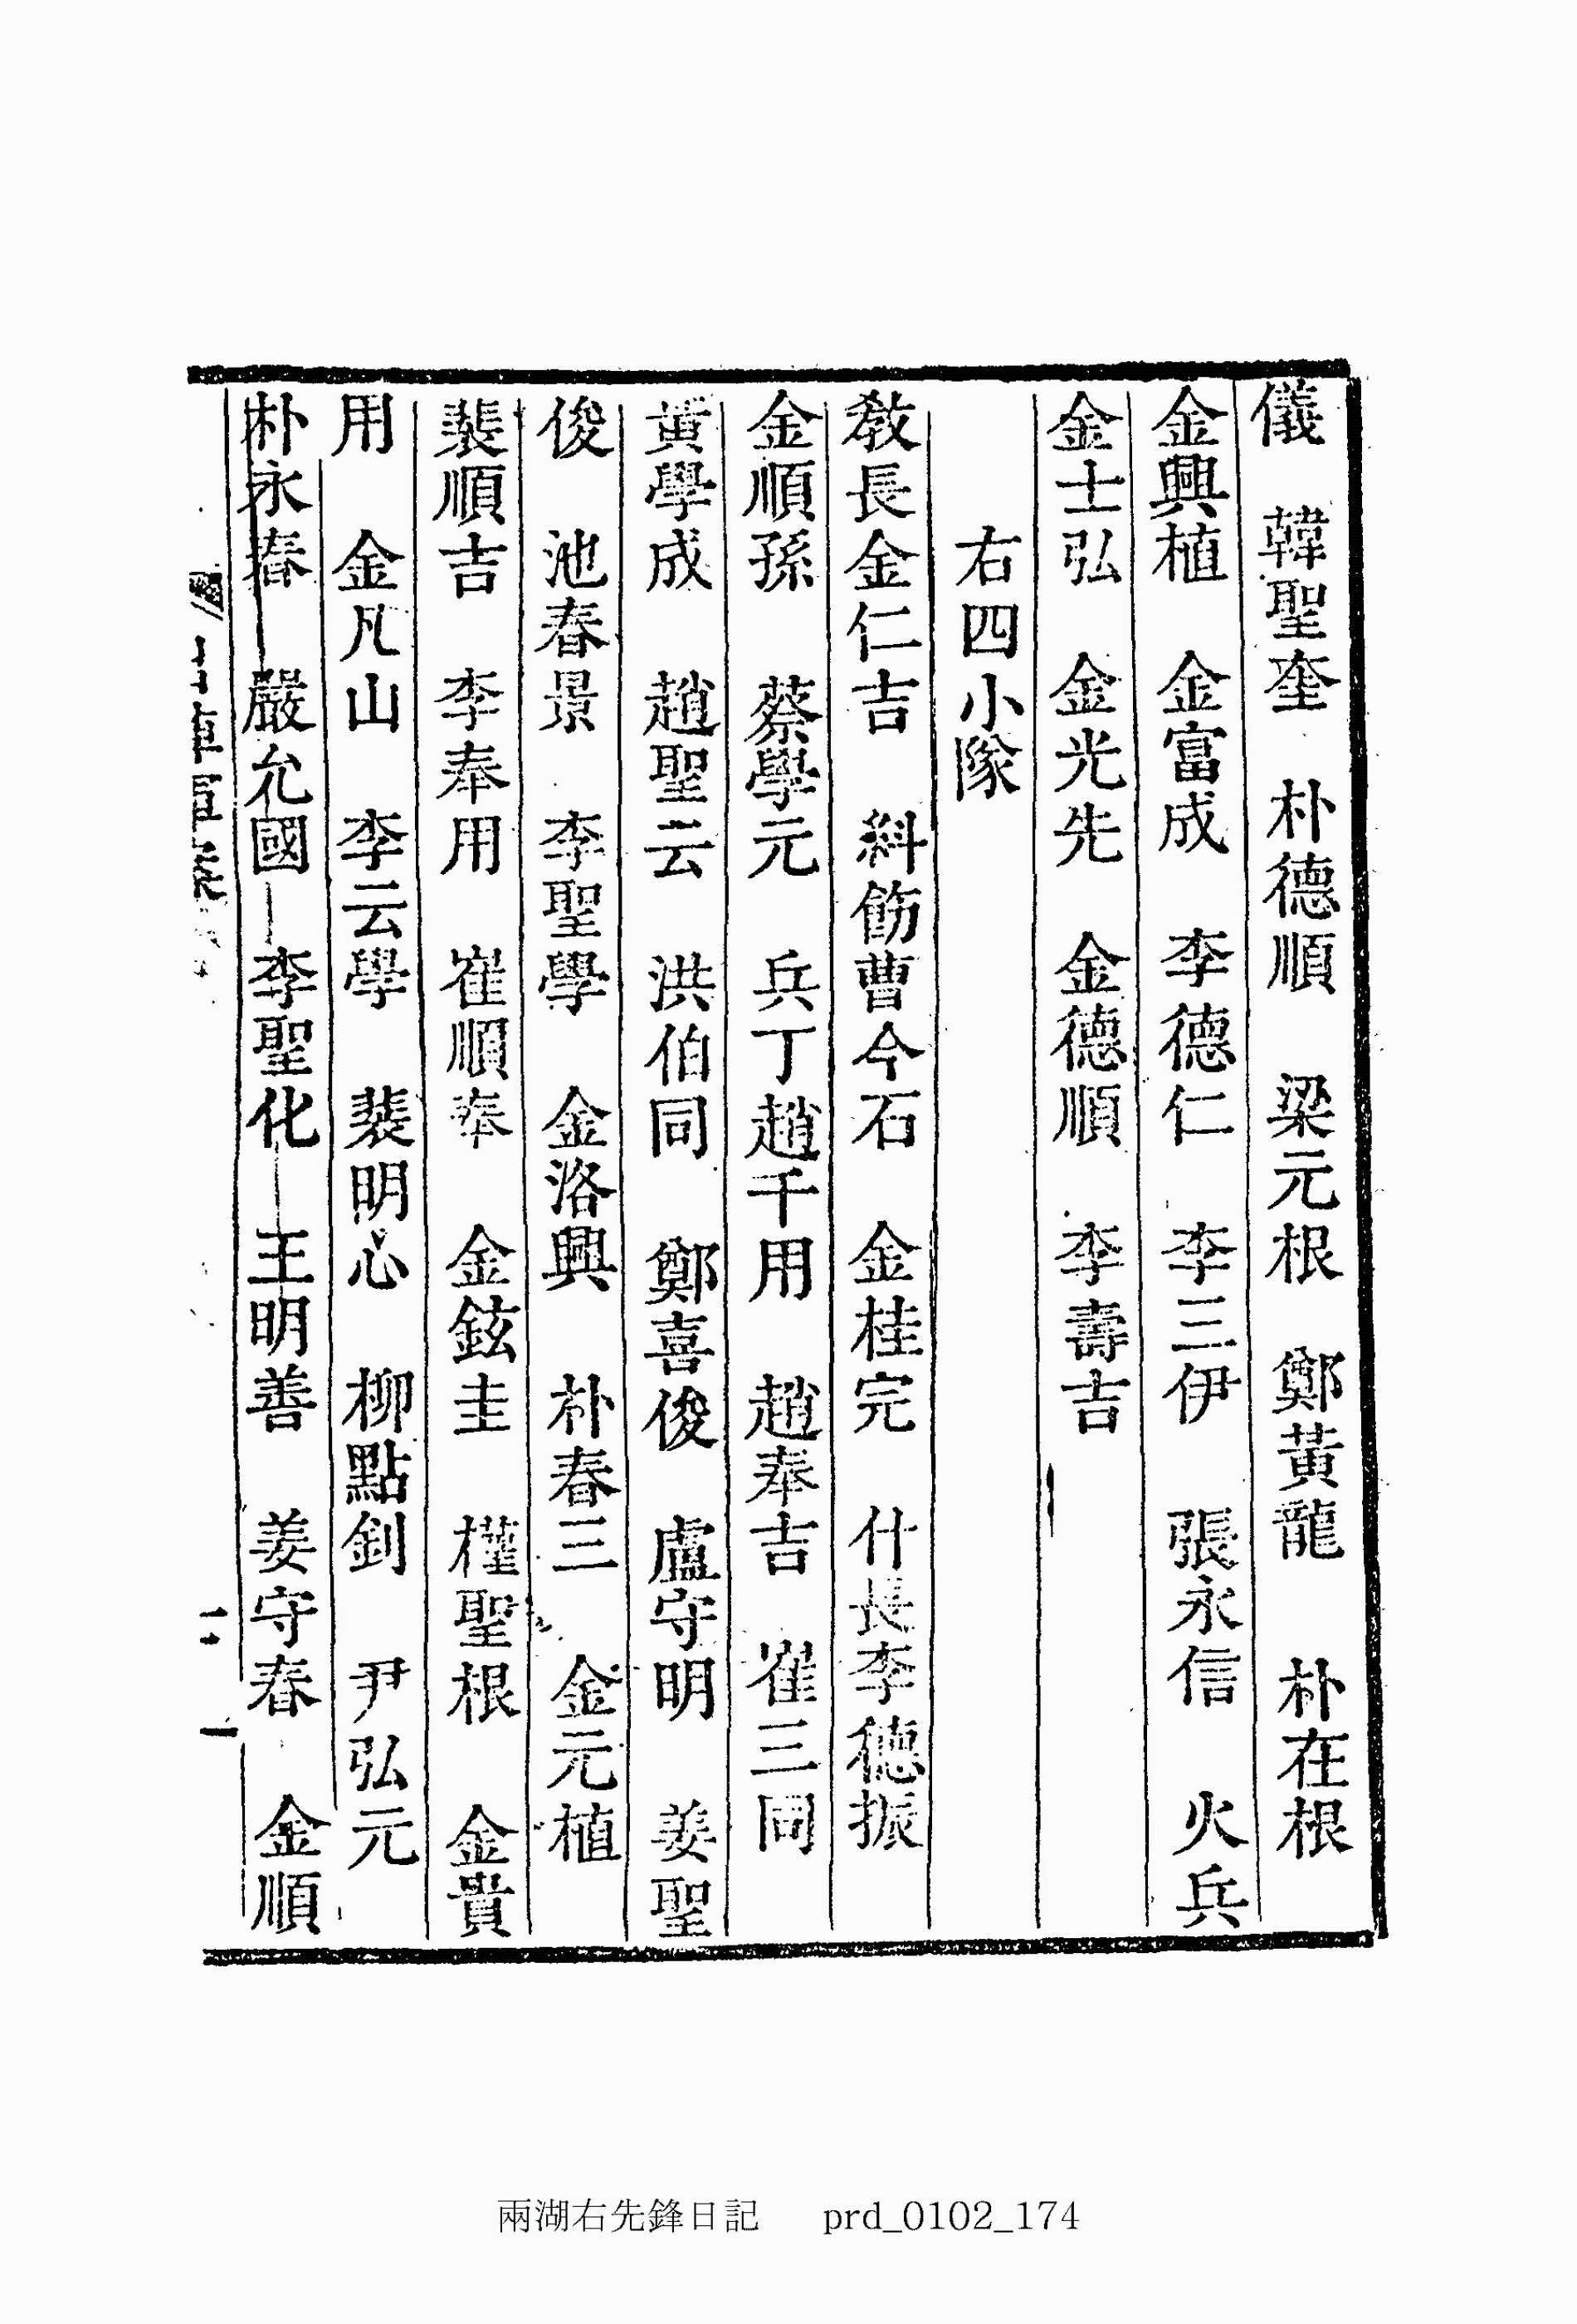 儀 韓聖奎 朴德順 梁元根 鄭黃龍 朴在根
金興植 金富成 李德仁 李三伊 張永信 火兵
金士弘 金光先 金德順 李壽吉
右四小隊
敎長金仁吉 糾飭曹今石 金桂完 什長李德振
金順孫 蔡學元 兵丁趙千用 趙奉吉 崔三同
黃學成 趙聖云 洪伯同 鄭喜俊 盧守明 姜聖
俊 池春景 李聖學 金洛興 朴春三 金元植
裴順吉 李奉用 崔順奉 金鉉圭 權聖根 金貴
用 金凡山 李云學 裴明心 柳點釗 尹弘元
朴永春 嚴允國 李聖化 王明善 姜守春 金順
兩湖右先鋒日記 prd_0102_174